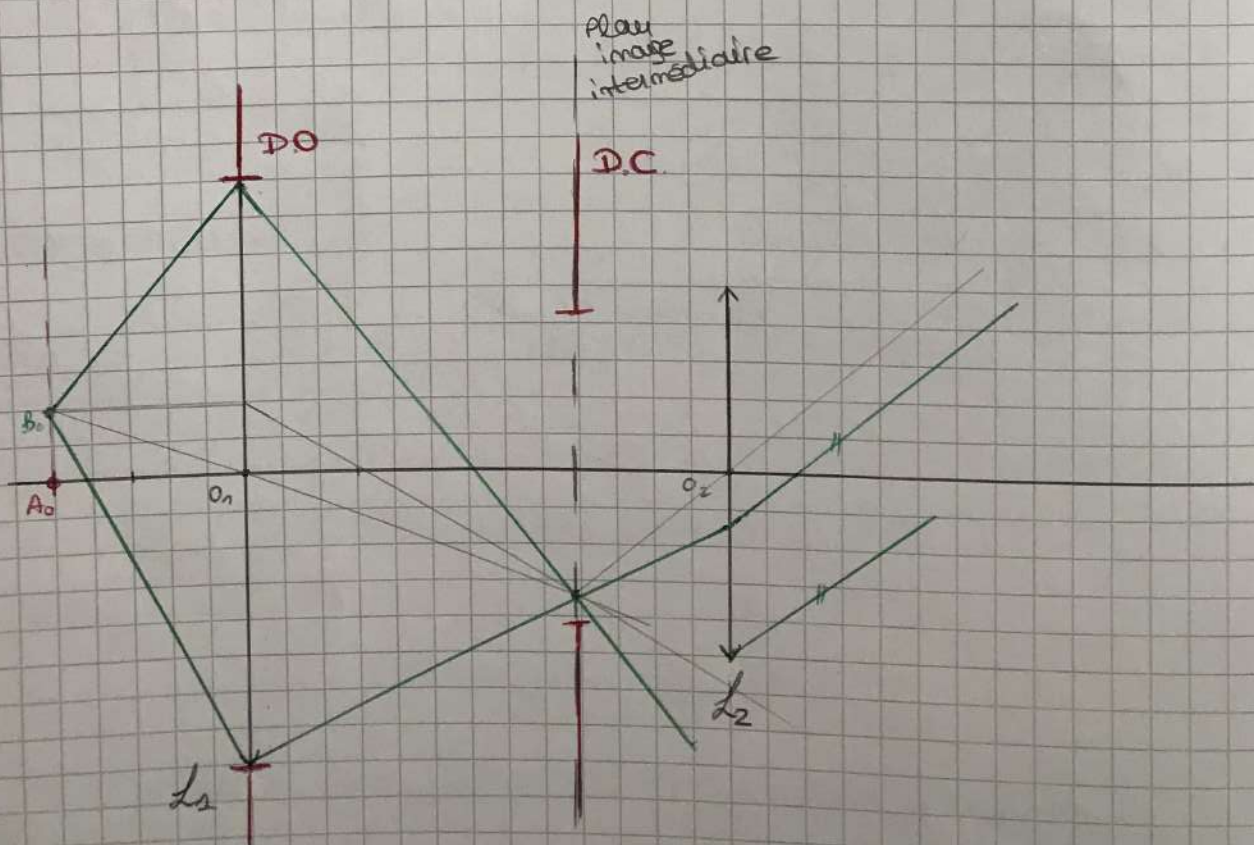 Plan
image
intermédiaire
D.O
D.C.
B₀
A₀
O₁
O₂
L₂
L₁